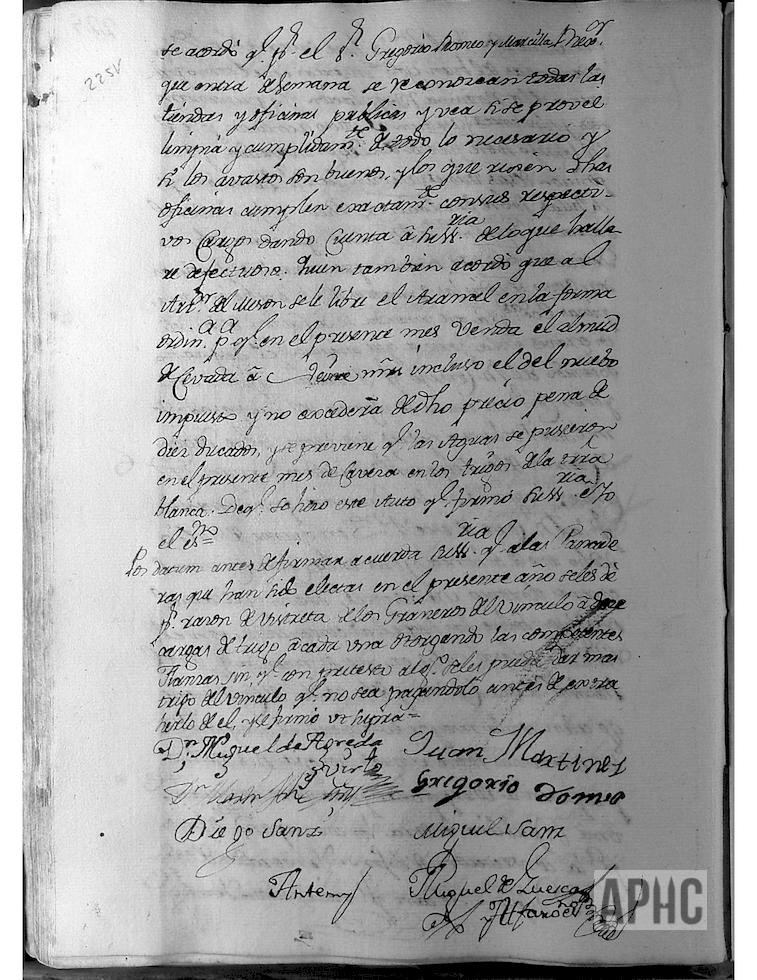 225v
se acordó q.e p.r el s.r Gregorio Romeo y Marcilla Rexor
que entra de semana se reconozcan todas las
tiendas y oficinas publicas y vea si se provee
limpia y cumplidam.te de todo lo necesario y
si los avastos son buenos, y los que rixen dhas
oficinas cumplen exactam.te con sus respecti-
vos Cargos dando Cuenta â su ss.ria de lo que halla
re defectuoso. Assi tambien acordó que al
Arr.or del meson se le libre el Aranzel en la forma
ordin.a p.a q.e en el presente mes Venda el almud
de Cevada â mrs incluso el del nuevo
impuesto y no excederà de dho precio pena de
diez ducados, y se previene q.e las Aguas se pusieron
en el presente mes de Cavera en los trigos de la
blanca. De q.e se hizo este Auto q.e firmó su ss.ria e Yo
el ss.no =
Pos datum antes de firmar acuerda su ss.ria q.e a las Panade
ras que han sido electas en el presente año se les dè
p.r razon de vistreta de los Graneros del Vinculo â doze
cargas de trigo a cada una otorgando las competentes
Fianzas sin q.e con pretesto alg.o se les pueda dar mas
trigo del vinculo q.e no sea pagandolo antes de extra
herlo de el, y se firmó vt supra =
D.n Miguel de Agreda
Juan Martinez
Gregorio Romeo
Diego Sanz
Miguel Sanz
Antemy
Miguel de Guesca
y Alfaro
APHC